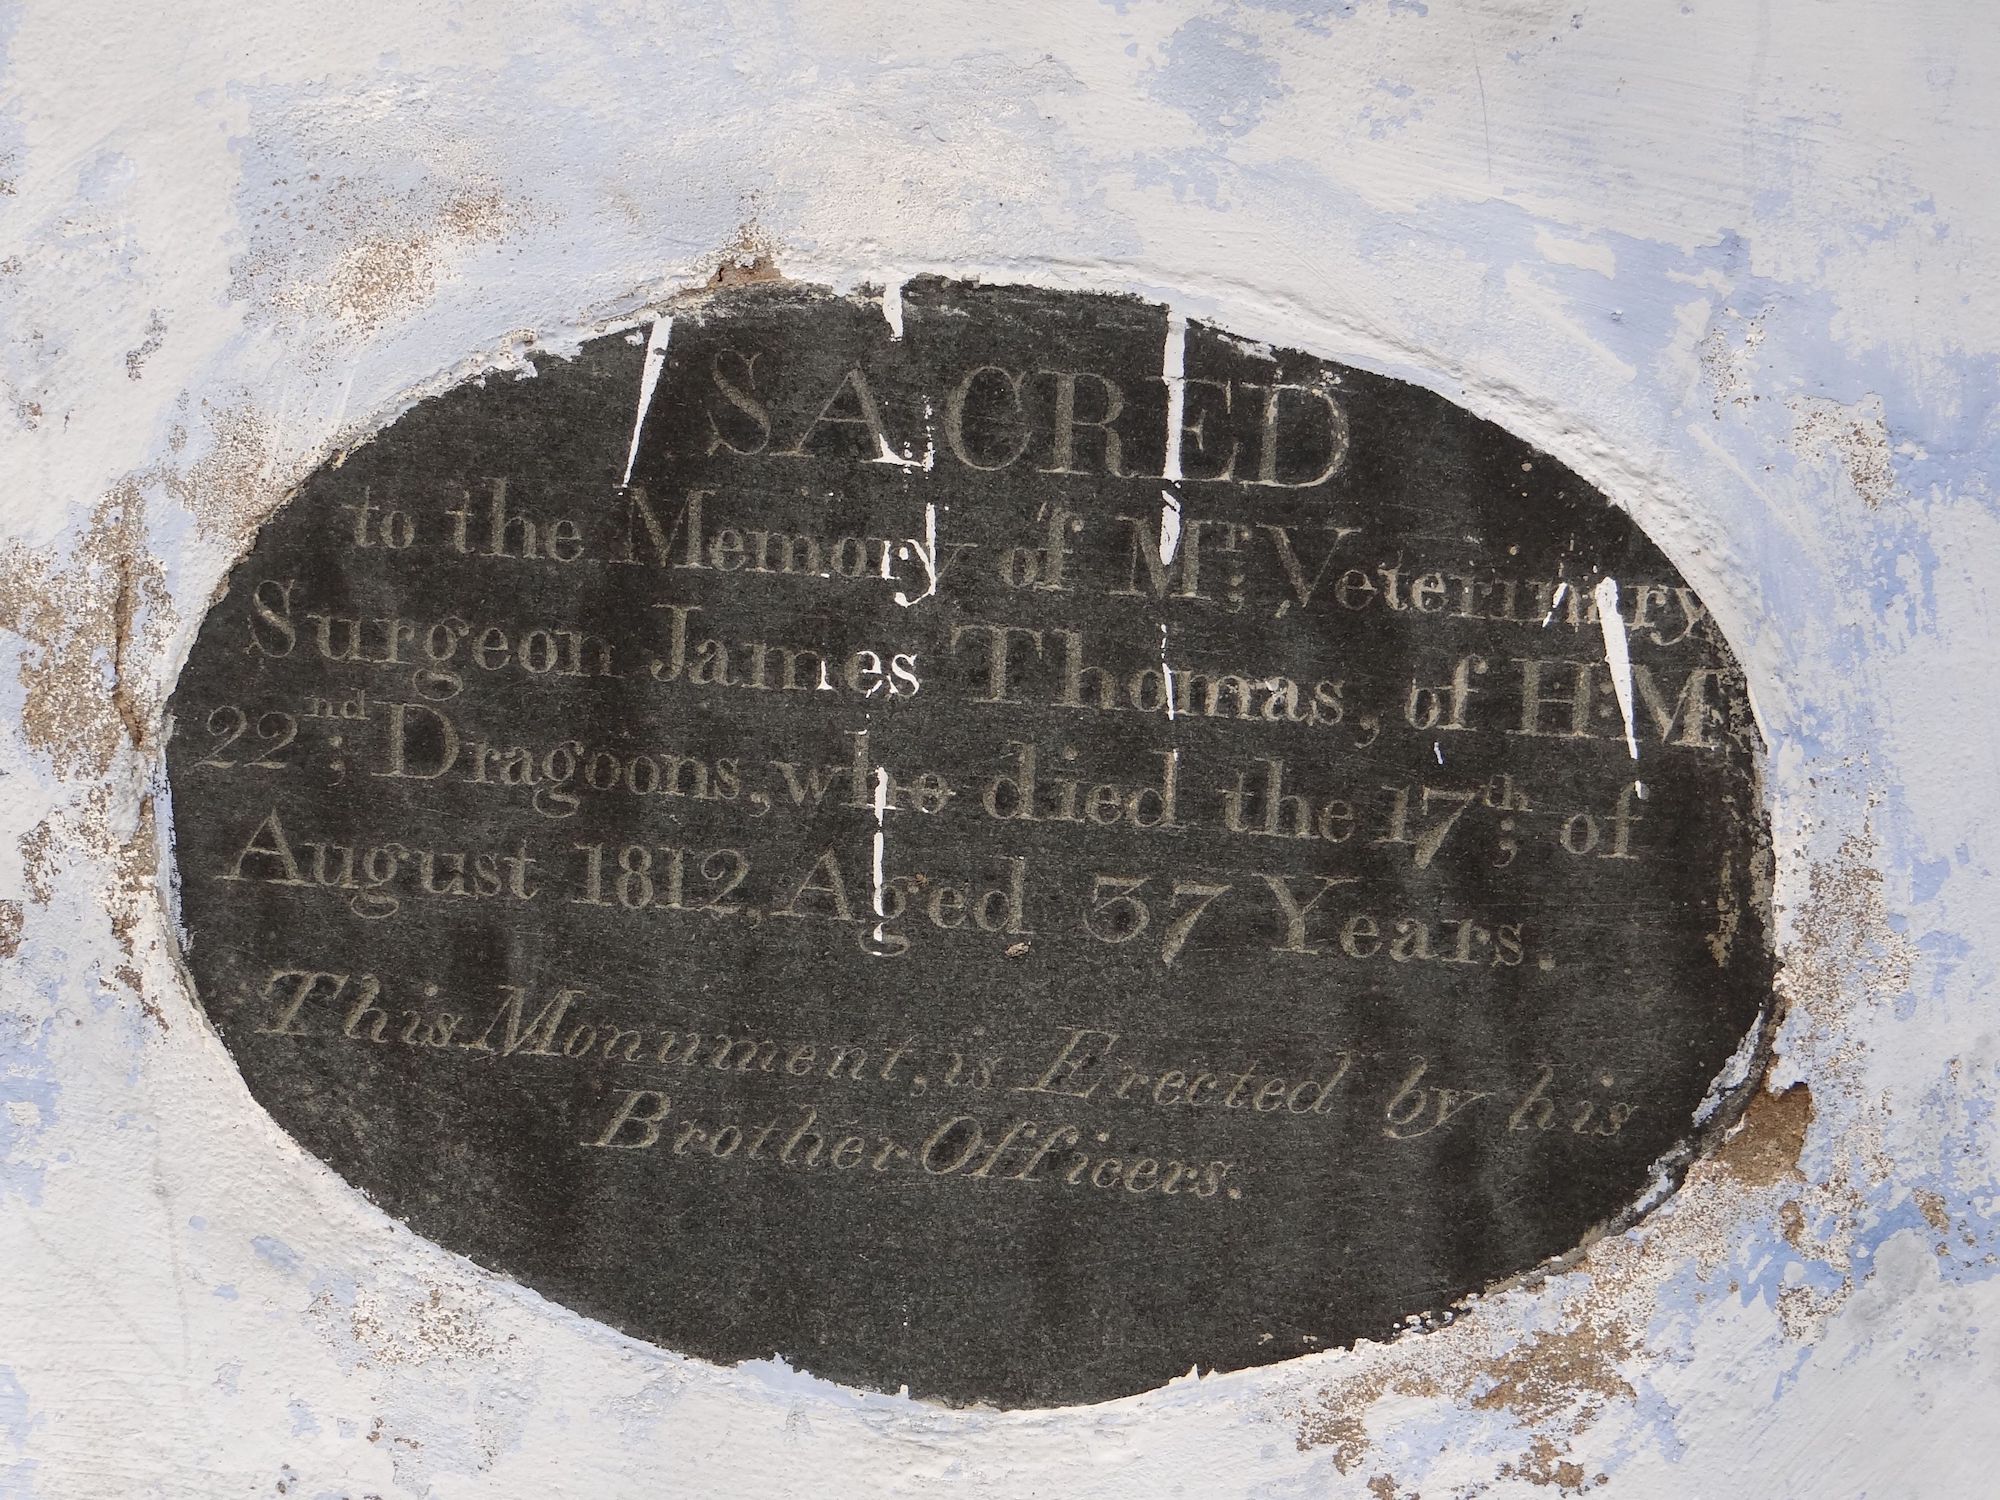 SACRED
to the Memory of Mr; Veterinary
Surgeon James Thomas, of H:M:
22nd; Dragoons, who died the 17th; of
August 1812, Aged 37 Years.
This Monument, is Erected by his
Brother Officers.